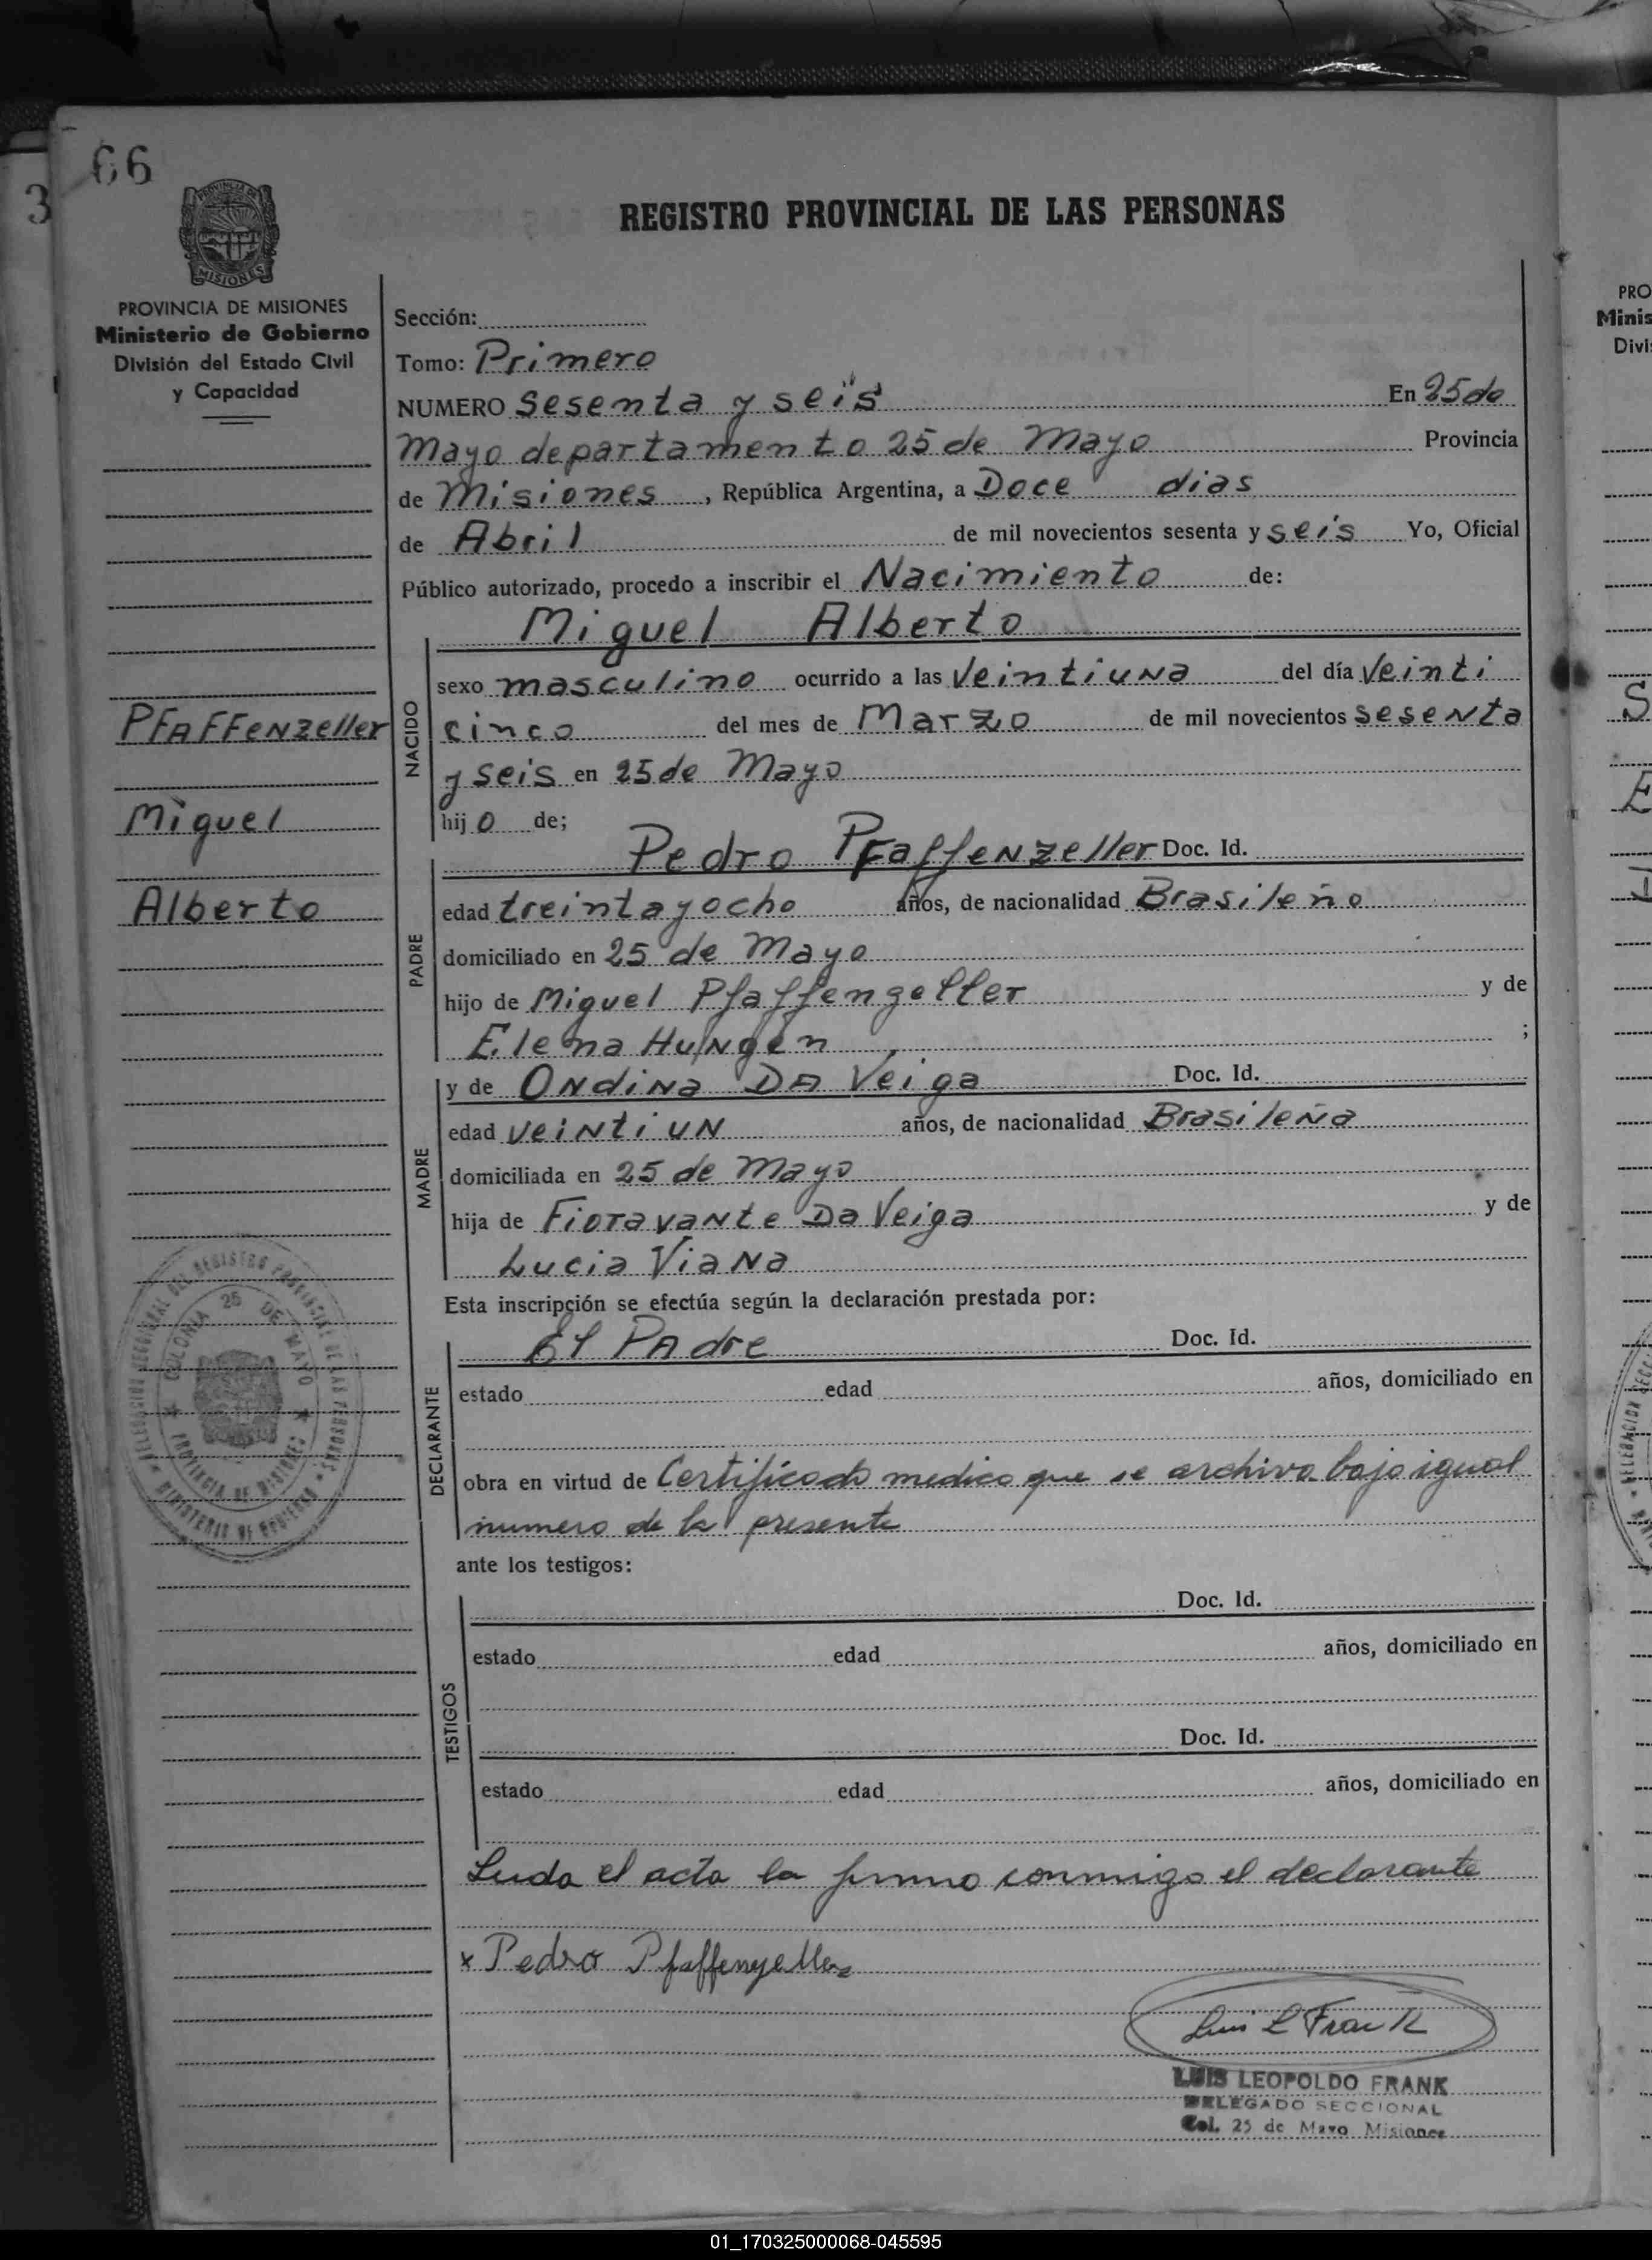 66
3
PROVINCIA DE
MISIONES
REGISTRO PROVINCIAL DE LAS PERSONAS
PROVINCIA DE MISIONES
Ministerio de Gobierno
División del Estado Civil
y Capacidad
PFAFFENZeller
Miguel
Alberto
Sección:
Tomo: Primero
NUMERO Sesenta y seis En 25 de
Mayo departamento 25 de Mayo Provincia
de Misiones, República Argentina, a Doce dias
de Abril de mil novecientos sesenta y seis Yo, Oficial
Público autorizado, procedo a inscribir el Nacimiento de:
Miguel Alberto
NACIDO
sexo masculino ocurrido a las veintiuna del día veinti
cinco del mes de Marzo de mil novecientos sesenta
y seis en 25 de Mayo
hijo de;
PADRE
Pedro Pfaffenzeller Doc. Id.
edad treinta y ocho años, de nacionalidad Brasileño
domiciliado en 25 de Mayo
hijo de Miguel Pfaffengeller y de
Elena Hungen ;
MADRE
y de Ondina Da Veiga Doc. Id.
edad veintiun años, de nacionalidad Brasileña
domiciliada en 25 de Mayo
hija de Fioravante Da Veiga y de
Lucia Viana
Esta inscripción se efectúa según la declaración prestada por:
DECLARANTE
El Padre Doc. Id.
estado edad años, domiciliado en
obra en virtud de Certificado medico que se archiva bajo igual
numero de la presente
ante los testigos:
TESTIGOS
Doc. Id.
estado edad años, domiciliado en
Doc. Id.
estado edad años, domiciliado en
Leida el acta la firmo conmigo el declarante
x Pedro Pfaffenzeller
Luis L Frank
LUIS LEOPOLDO FRANK
DELEGADO SECCIONAL
Col. 25 de Mayo Misiones
COLONIA 25 DE MAYO
PROVINCIA DE MISIONES
PRO
Minis
Divi
01_170325000068-045595